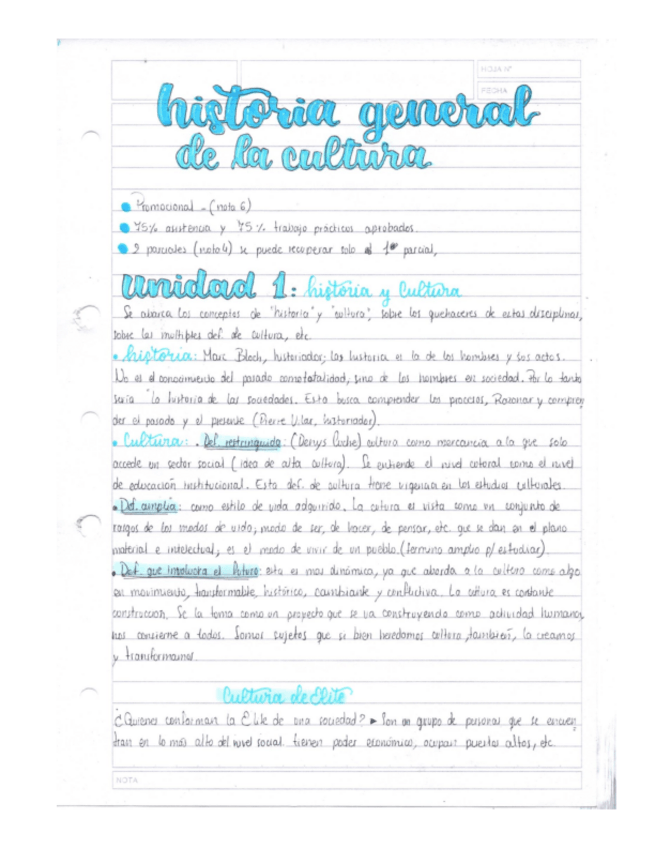 HOJA Nº
FECHA
historia general
de la cultura
Promocional - (nota 6)
75% asistencia y 75% trabajo prácticos aprobados.
2 parciales (nota 4) se puede recuperar solo el 1er parcial,
Unidad 1: historia y Cultura
Se abarca los conceptos de "historia" y "cultura", sobre los quehaceres de estas disciplinas,
sobre las multiples def. de cultura, etc.
• historia: Marc Bloch, historiador; las historia es la de los hombres y sus actos.
No es el conocimiento del pasado como totalidad, sino de los hombres en sociedad. Por lo tanto
seria "la historia de las sociedades. Esta busca comprender los procesos, Razonar y compren
der el pasado y el presente (Pierre Vilar, historiador).
• Cultura: • Def. restringida: (Denys Cuche) cultura como mercancia a la que solo
accede un sector social (idea de alta cultura). Se entiende el nivel cultural como el nivel
de educación institucional. Esta def. de cultura tiene vigencia en los estudios culturales.
• Def. amplia: como estilo de vida adquirido. La cultura es vista como un conjunto de
rasgos de los modos de vida, modo de ser, de hacer, de pensar, etc. que se dan en el plano
material e intelectual, es el modo de vivir de un pueblo. (termino amplio p/ estudiar).
• Def. que involucra el futuro: esta es mas dinámica, ya que aborda a la cultura como algo
en movimiento, transformable, histórico, cambiante y conflictiva. La cultura es constante
construccion. Se la toma como un proyecto que se va construyendo como actividad humana,
nos concierne a todos. Somos sujetos que si bien heredamos cultura, también, la creamos
y transformamos.
Cultura de Elite
¿Quienes conforman la Elite de una sociedad? ► Son un grupo de personas que se encuen
tran en lo más alto del nivel social tienen poder económico, ocupan puestos altos, etc
NOTA